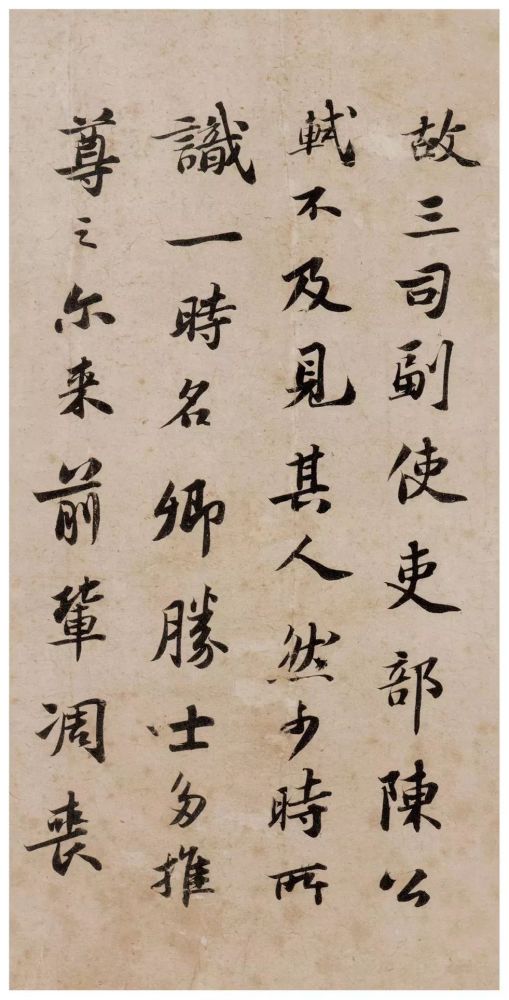 故三司副使吏部陳公
軾不及見其人然少時所
識一時名卿勝士多推
尊之尔来前輩凋喪